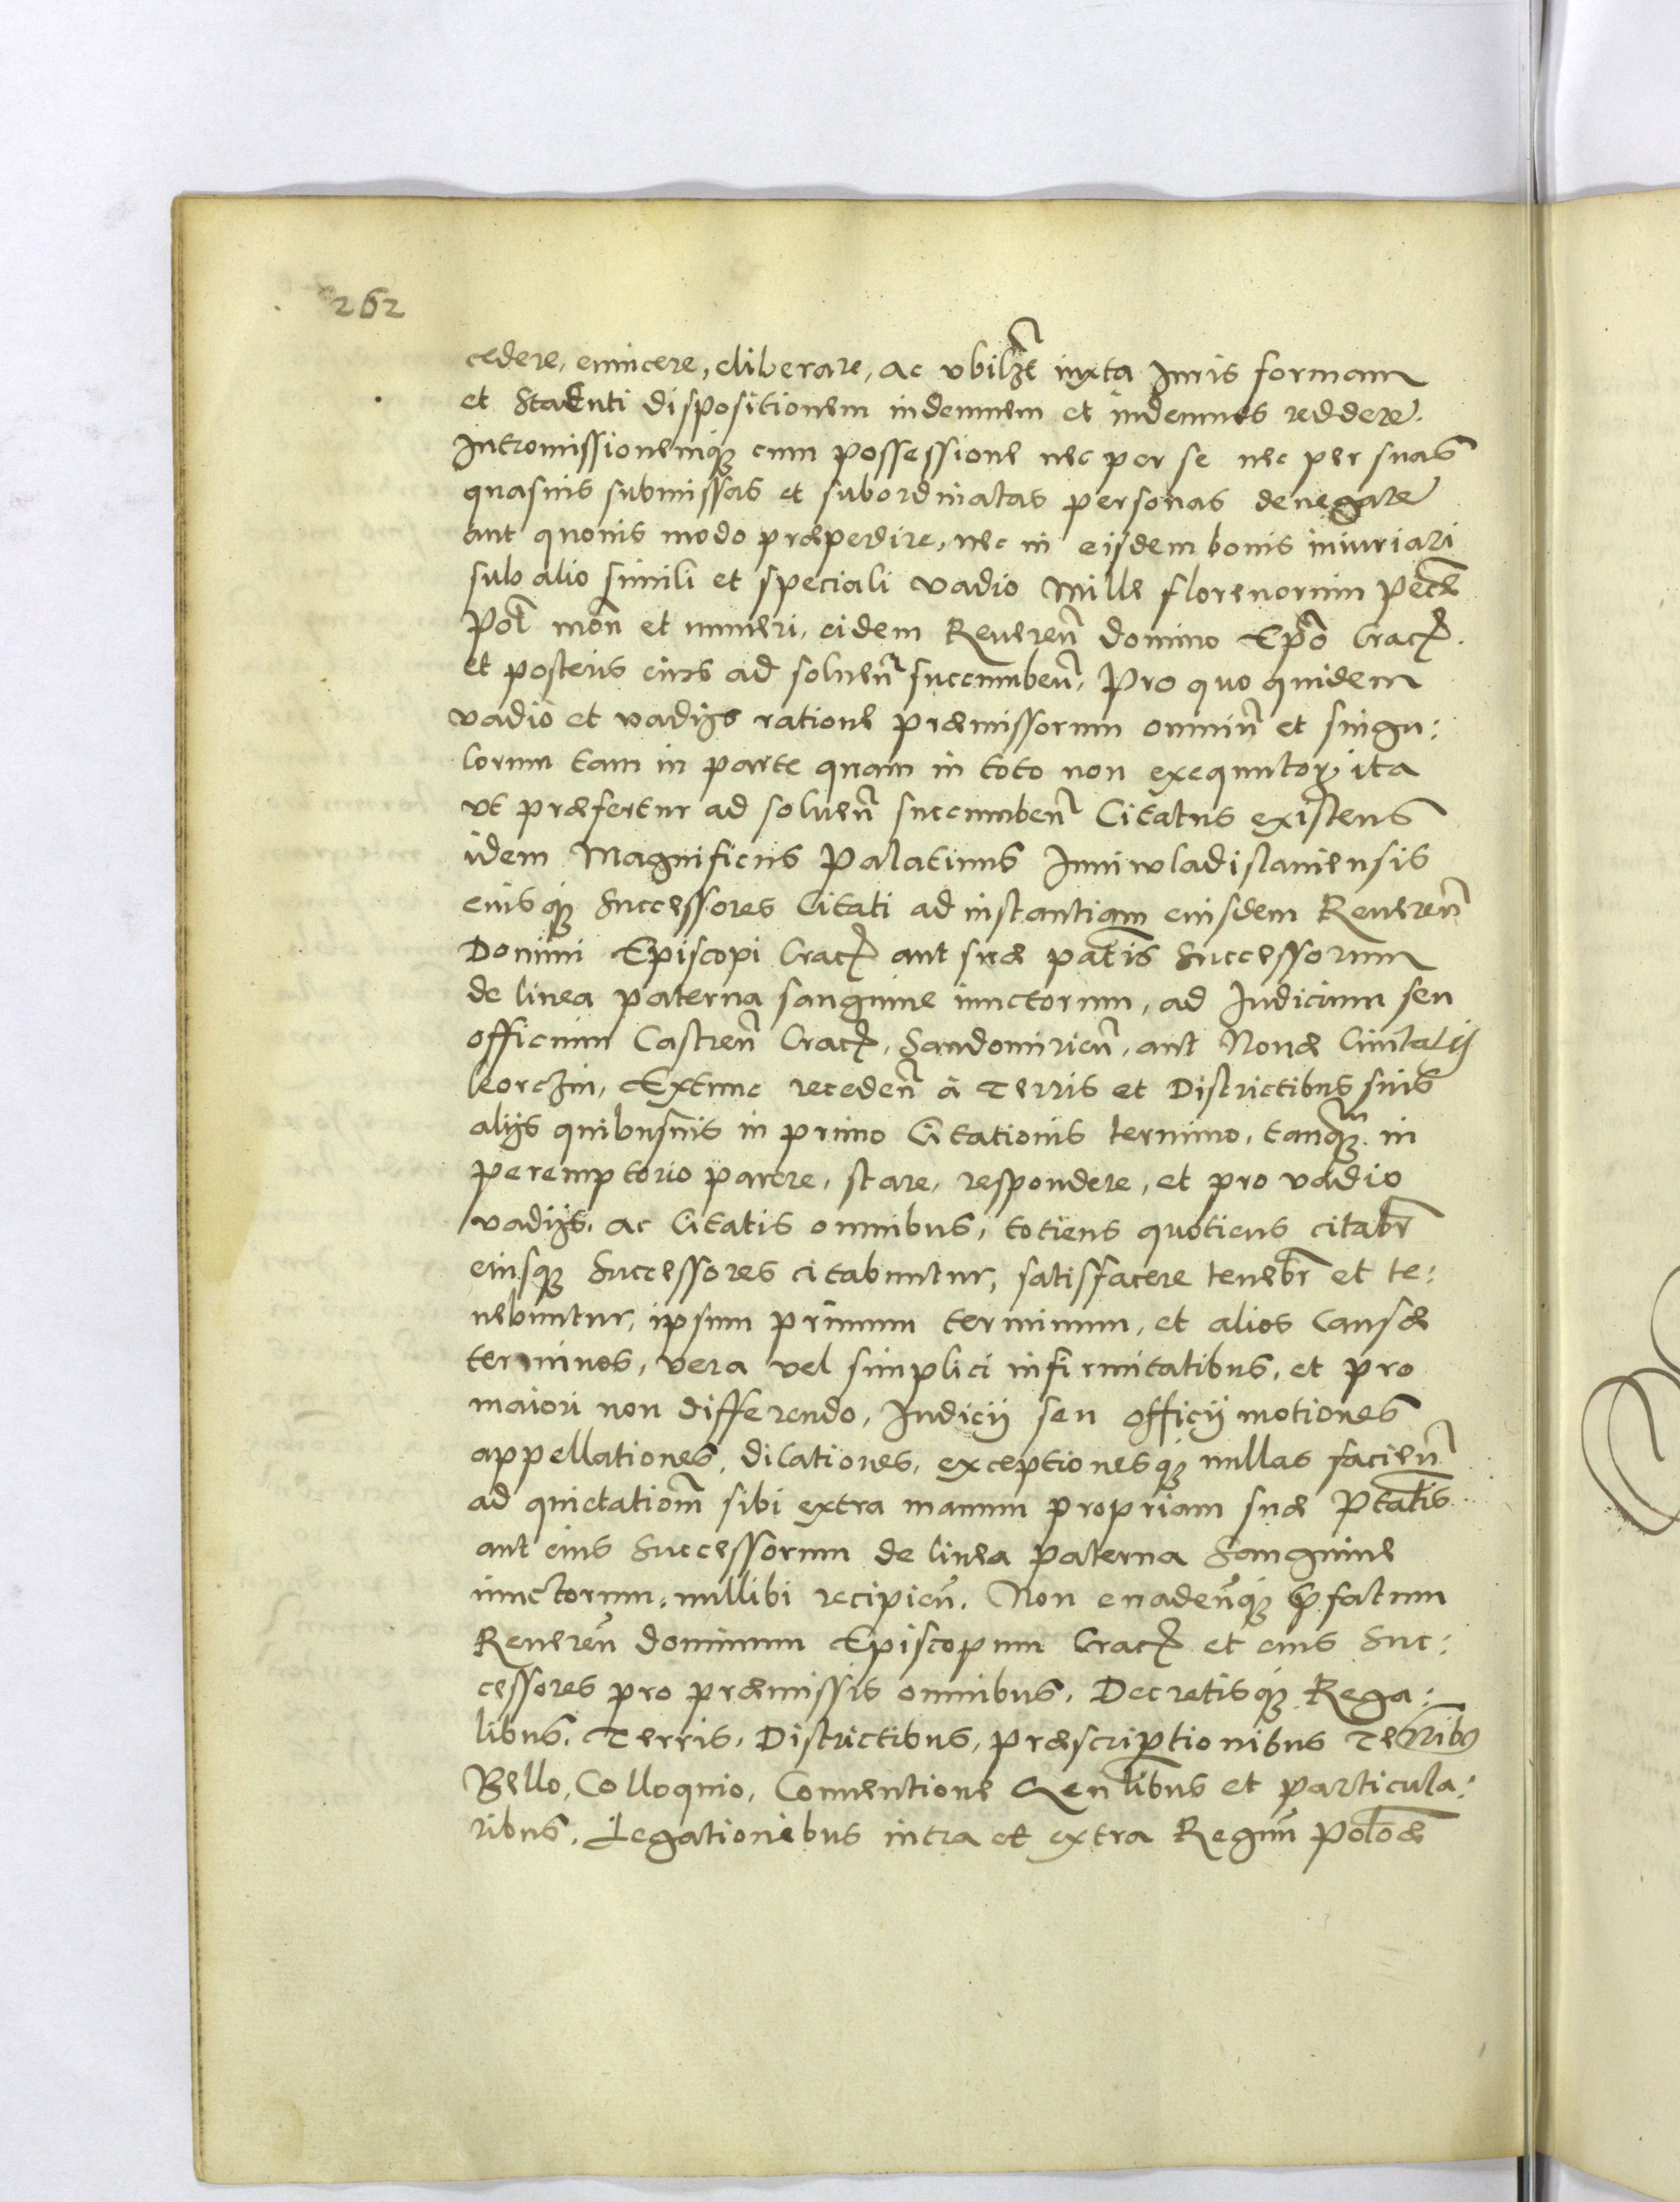 262
cedere, euincere, eliberare, ac vbilʒt iuxta Iuris formam
et Statuti dispositionem indemnem et indemnes reddere.
Intromissionemqꝫ cum possessione nec per se nec per suas
quasuis submissas et subordinatas personas denegare
aut quouis modo præpedire, nec in eisdem bonis iniuriari
sub alio simili et speciali vadio Mille florenorum pec̃e
Pol̃ moñ et numeri, eidem Reuereñ domino Ep̃o Crac̃.
et posteris eius ad soluen̄ succumben̄, Pro quo quidem
vadio et vadijs ratione præmissorum omniū et singu:
lorum tam in parte quam in toto non exequutoꝝ, ita
vt præfertur ad soluen̄ succumben̄ Citatus existens
idem Magnificus Palatinus Iuniwladislauiensis
eiusqꝫ Successores Citati ad instantiam eiusdem Reueren̄
Domini Episcopi Crac̃ aut suæ pat̃is Successorum
de linea paterna sanguine iunctorum, ad Iudicium seu
officium Castren̄ Crac̃, Sandomirien̄, aut Nouæ Ciuitatis
Corczin, Extunc receden̄ à Terris et Districtibus suis
alijs quibusuis in primo Citationis termino, tanqꝫ in
peremptorio parere, stare, respondere, et pro vadio
vadijs, ac Citatis omnibus, totiens quotiens citabr̃
eiusqꝫ Successores citabuntur, satisfacere tenebr̃ et te:
nebuntur, ipsum primum terminum, et alios Causæ
terminos, vera vel simplici infirmitatibus, et pro
maiori non differendo, Iudicij seu officij motiones
appellationes, dilationes, exceptionesqꝫ nullas facien̄
ad quietatiom̃ sibi extra manum propriam suæ Ptat̃is
aut eius Successorum de linea paterna Sanguine
iunctorum, nullibi recipien̄. Non euaden̄qꝫ p̃fatum
Reueren̄ dominum Episcopum Crac̃ et eius Suc:
cessores pro præmissis omnibus, Decretisqꝫ Rega:
libus, Terris, Districtibus, præscriptionibus Terr̃ibꝰ
Bello, Colloquio, Conuentione Gen̄libus et particula:
ribus, Legationibus intra et extra Regnū Pol̃oæ